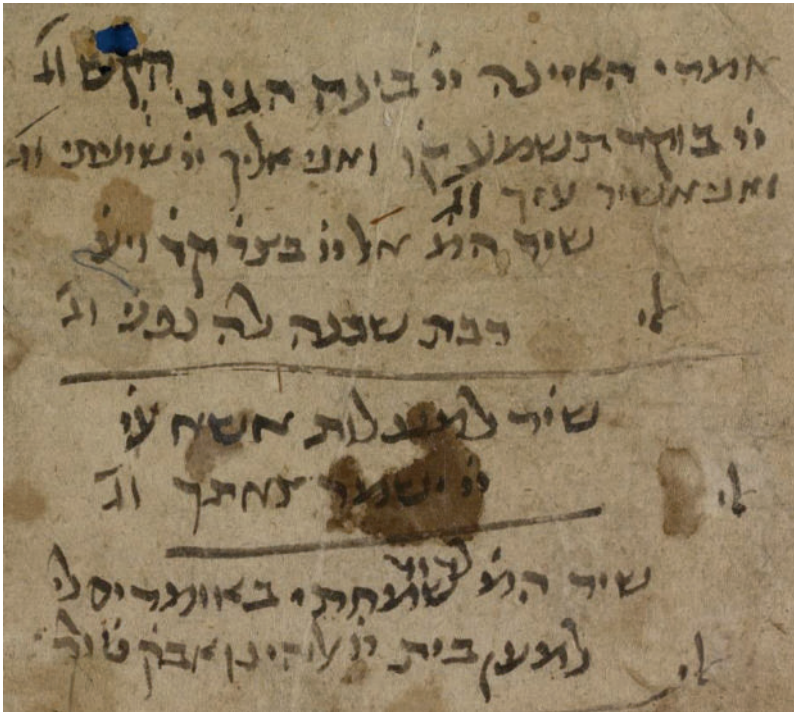 אמרי האזינה ייֹ בינה הגיגי הקש וגֹ
ייֹ בוקר תשמע קוֹ ואני אליך ייֹ שועתי וגֹ
ואני אשיר עוזך וגֹ
שיר המֹ אל ייֹ בצרֹ קרֹ ויעֹ
לי רבת שכנה לה נפשיֹ וגֹ
שיר למעלות אשא עיֹ
לי ייֹ ישמר צאתך וגֹ
שיר המֹ לדוד שמחתי באומרים לי
לי למען בית ייֹ אבקֹ טוב לך